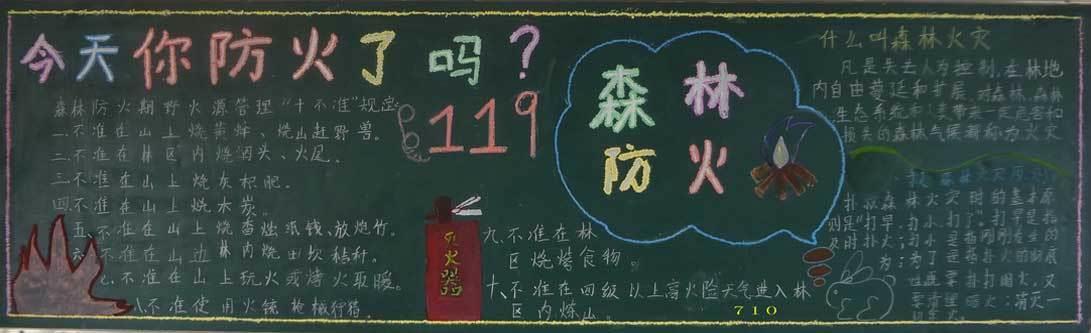 今天你防火了吗?
119
森林防火期野火源管理"十不准"规定
一不准在山上烧黄蜂、烧山赶野兽。
二不准在林区内烧田头、火尾。
三不准在山上烧灰积肥。
四不准在山上烧木炭。
五、不准在山上烧香烛纸钱、放炮竹。
六、不准在山边林内烧田坎秸秆。
七、不准在山上玩火或烤火取暖。
八、不准使用火铳枪械狩猎。
灭火器
九、不准在林
区烧烤食物。
十、不准在四级以上高火险天气进入林
区内炼山。
森林
防火
什么叫森林火灾
凡是失去人为控制,在林地
内自由蔓延和扩展,对森林、森林
生态系统和人类带来一定危害和
损失的森林
称为火灾
扑救森林火灾时的基本原
则是"打早、打小、打了"打早是指
及时扑火;打小是指刚刚发生的
为了是指扑火的彻底
既要扑打明火,又
要清理暗火;消灭一
710